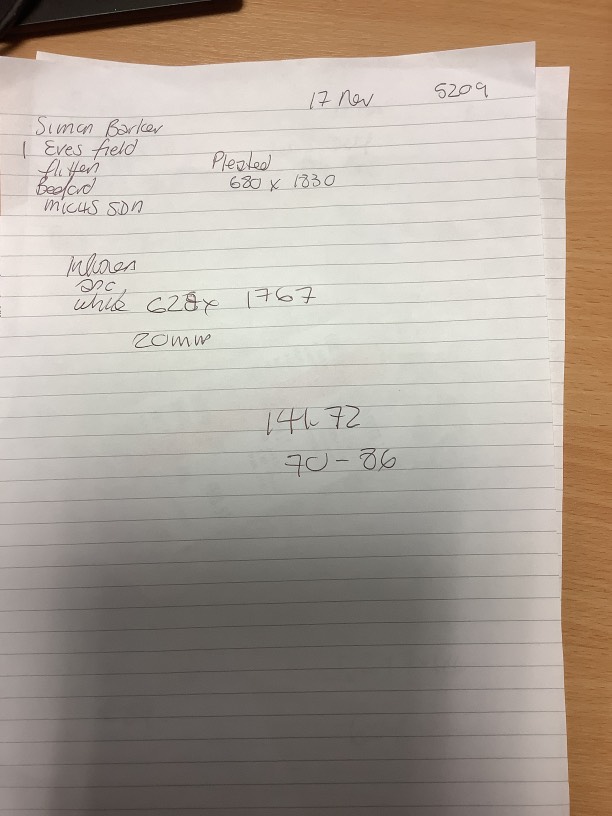 17 Nov 5209
Simon Barker
1 Eves field
flitten
Bedford
MK45 5DN
Pleated
680 x 1830
arc
white 628x 1767
20mm
141.72
70-86